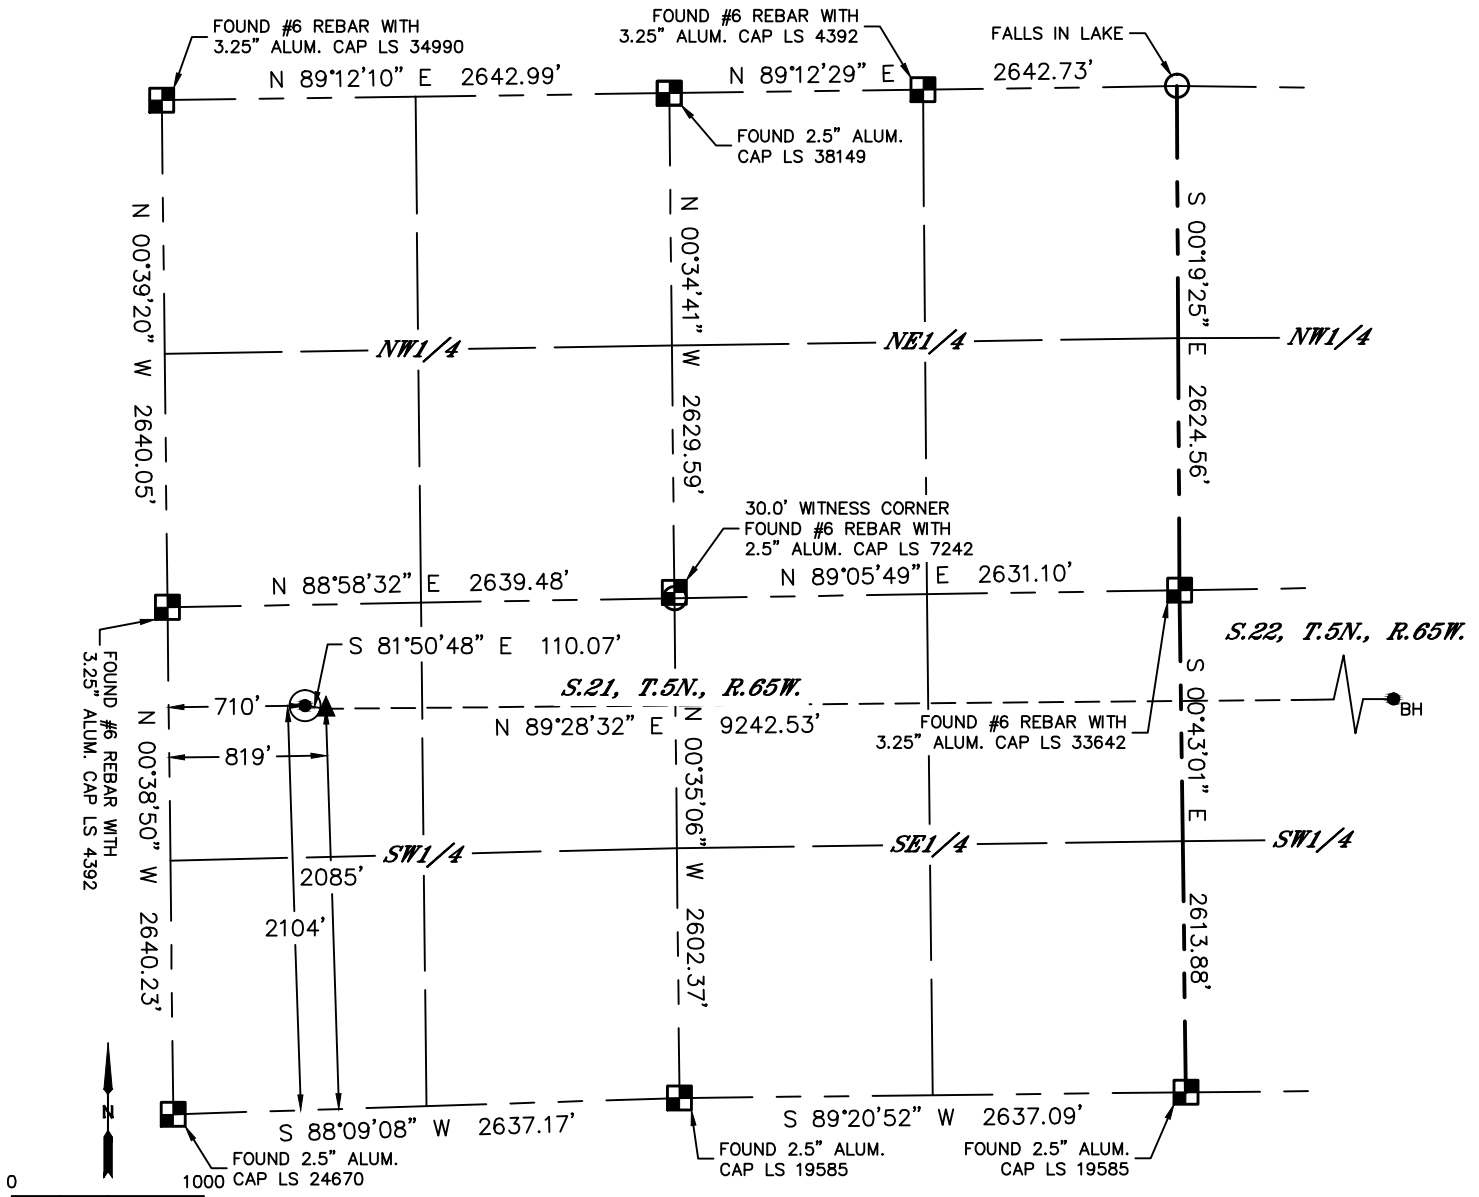 FOUND #6 REBAR WITH
3.25" ALUM. CAP LS 34990
FOUND #6 REBAR WITH
3.25" ALUM. CAP LS 4392
FALLS IN LAKE
N 89°12'10" E 2642.99'
N 89°12'29" E 2642.73'
FOUND 2.5" ALUM.
CAP LS 38149
N 00°39'20" W 2640.05'
N 00°34'41" W 2629.59'
S 00°19'25" E 2624.56'
NW1/4
NE1/4
NW1/4
30.0' WITNESS CORNER
FOUND #6 REBAR WITH
2.5" ALUM. CAP LS 7242
N 88°58'32" E 2639.48'
N 89°05'49" E 2631.10'
S.22, T.5N., R.65W.
S 81°50'48" E 110.07'
S.21, T.5N., R.65W.
710'
N 89°28'32" E 9242.53'
BH
FOUND #6 REBAR WITH
3.25" ALUM. CAP LS 33642
819'
FOUND #6 REBAR WITH
3.25" ALUM. CAP LS 4392
N 00°38'50" W 2640.23'
N 00°35'06" W 2602.37'
S 00°43'01" E 2613.88'
SW1/4
SE1/4
SW1/4
2085'
2104'
N
S 88°09'08" W 2637.17'
S 89°20'52" W 2637.09'
FOUND 2.5" ALUM.
CAP LS 24670
FOUND 2.5" ALUM.
CAP LS 19585
FOUND 2.5" ALUM.
CAP LS 19585
0 1000